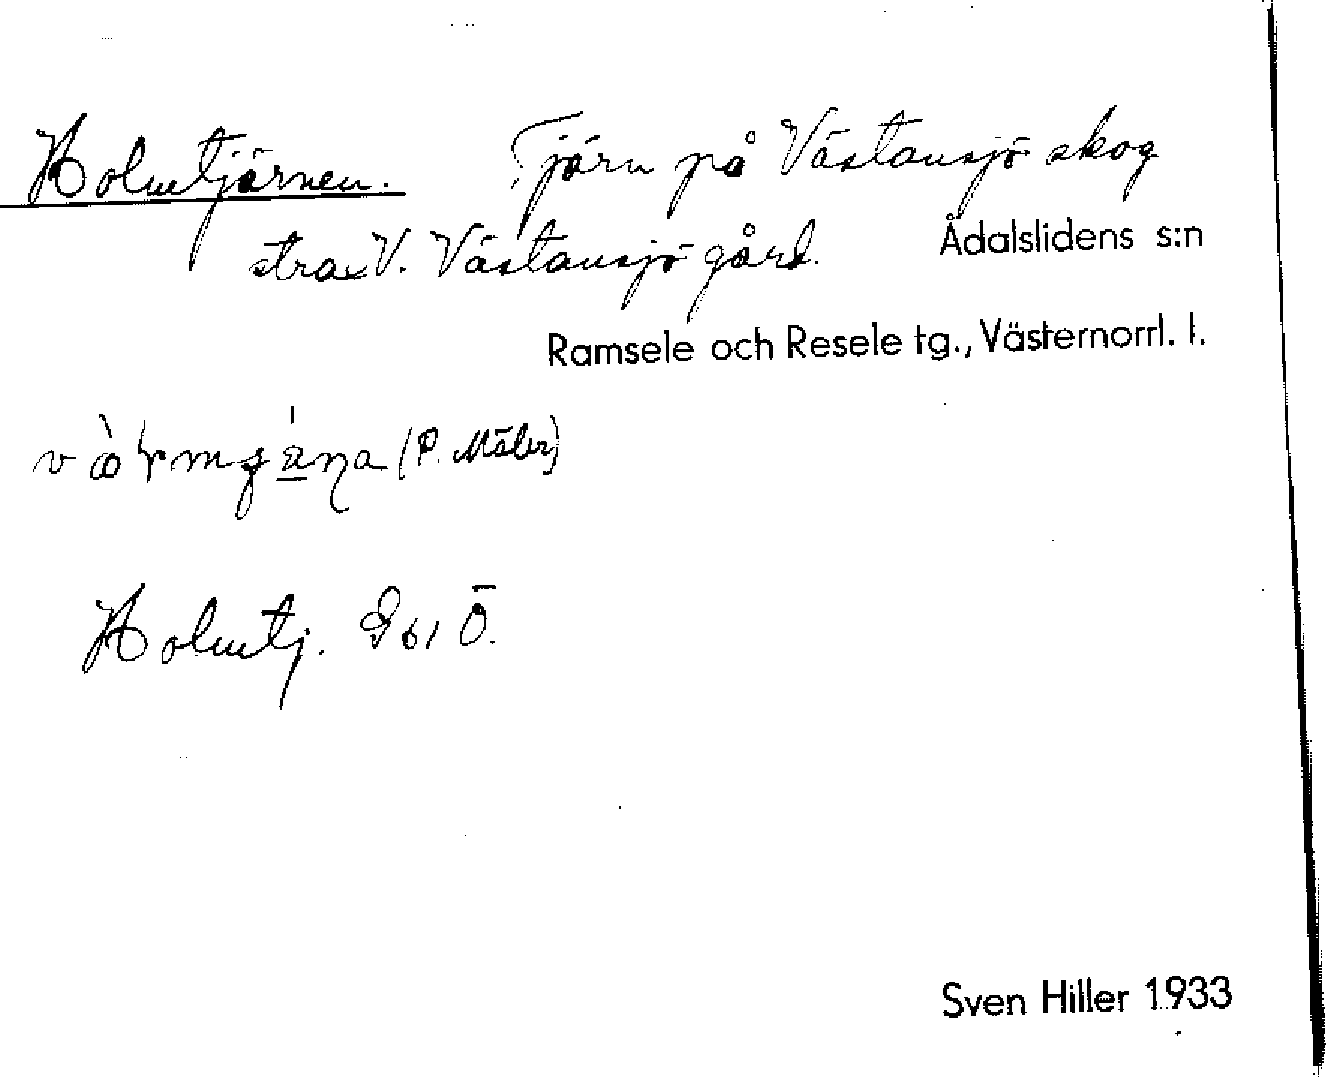 Holmtjärnen. Tjärn på Västansjö skog
strax V. Västansjö gård. Ådalslidens s:n
Ramsele och Resele tg., Västernorrl. l.
(P. Mäler)
Holmtj. G 61 Ö.
Sven Hiller 1933